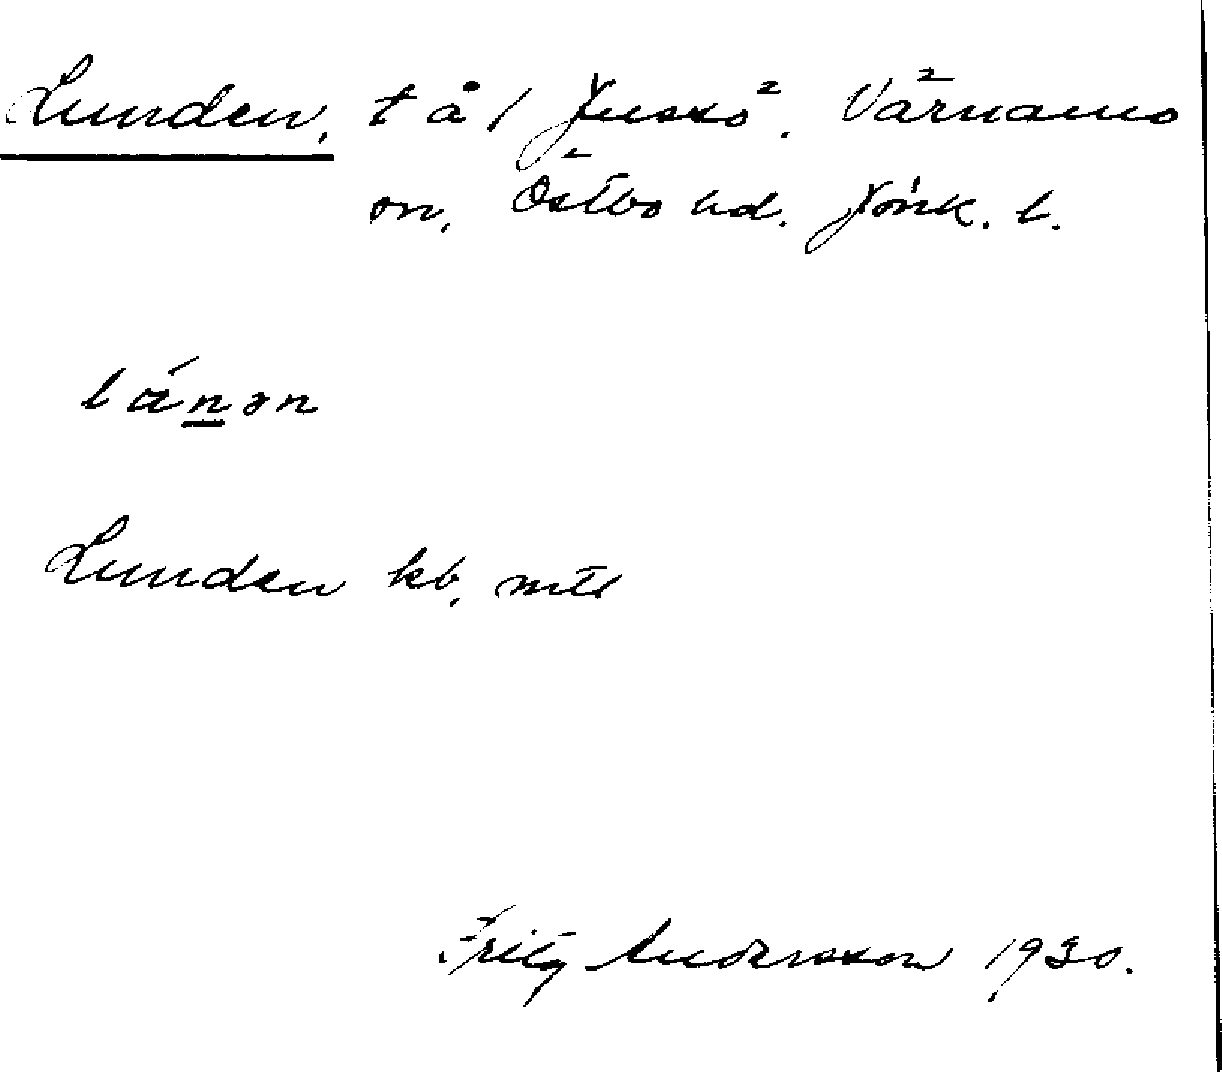 Lunden, t å 1 Jusxö. Värnamo
sn, Östbo hd. Jönk. l.
lánən
Lunden kb, mtl
Fritz Andersson 1930.